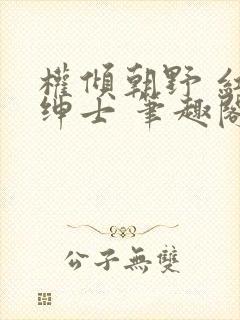 權傾朝野 紅
绅士 筆趣閣
公子無雙